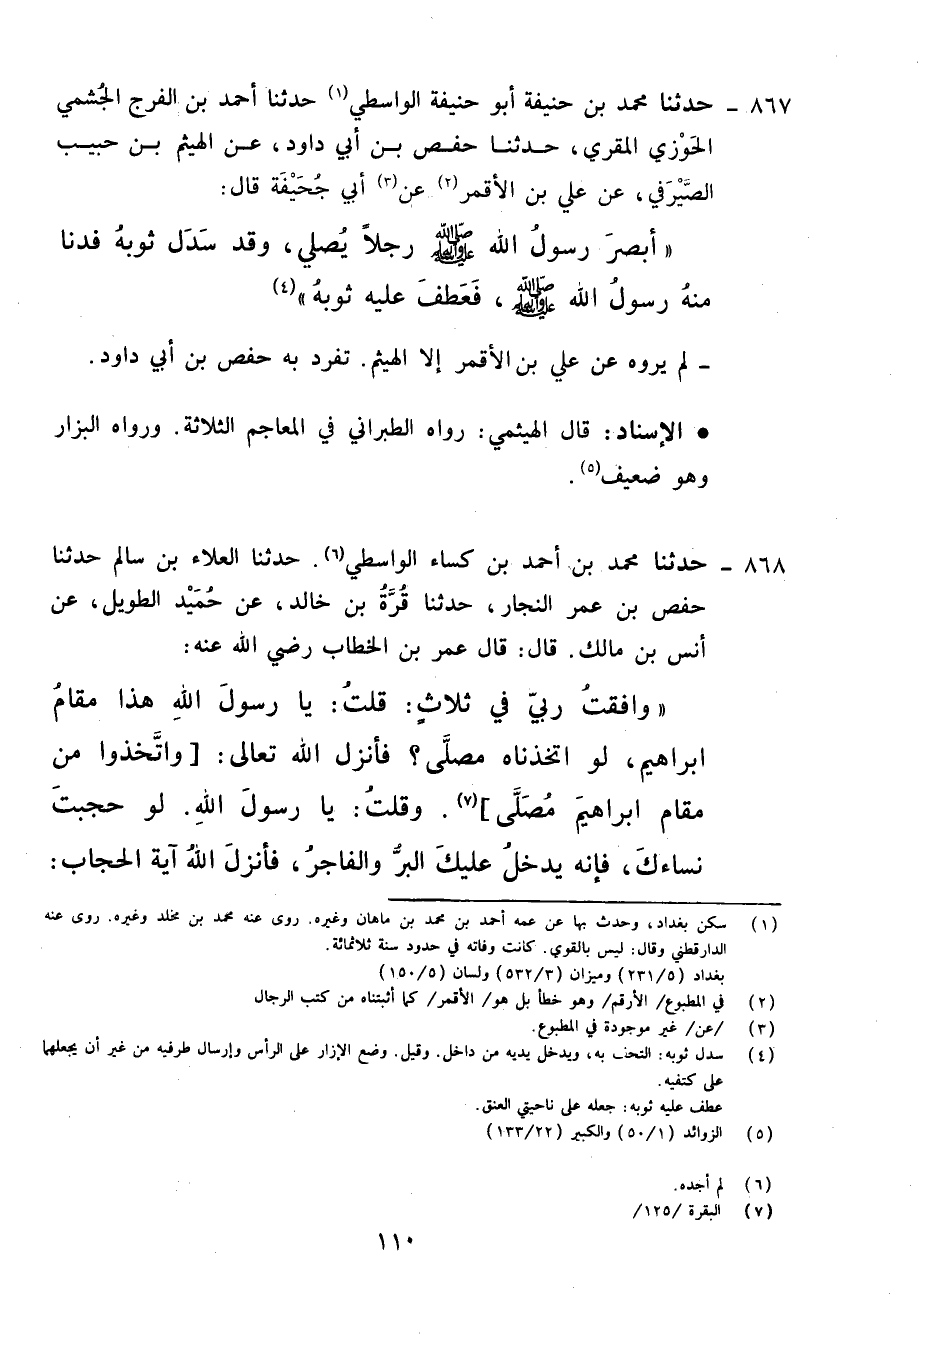 ٨٦٧ - حدثنا محمد بن حنيفة أبو حنيفة الواسطي(١) حدثنا أحمد بن الفرج الجُشمي
الجَوْزي المقري، حدثنا حفص بن أبي داود، عن الهيثم بن حبيب
الصَّيْرَفي، عن علي بن الأقمر(٢) عن(٣) أبي جُحَيْفَة قال:
« أبصرَ رسولُ الله ﷺ رجلاً يُصلي، وقد سَدَل ثوبهُ فدنا
منهُ رسولُ الله ﷺ ، فَعَطفَ عليه ثوبهُ»(٤)
- لم يروه عن علي بن الأقمر إلا الهيثم. تفرد به حفص بن أبي داود.
• الإسناد: قال الهيثمي: رواه الطبراني في المعاجم الثلاثة. ورواه البزار
وهو ضعيف(٥).
٨٦٨ - حدثنا محمد بن أحمد بن كساء الواسطي(٦). حدثنا العلاء بن سالم حدثنا
حفص بن عمر النجار، حدثنا قُرَّةُ بن خالد، عن حُمَيْد الطويل، عن
أنس بن مالك. قال: قال عمر بن الخطاب رضي الله عنه:
« وافقتُ ربيّ في ثلاثٍ: قلتُ: يا رسولَ اللهِ هذا مقامُ
ابراهيم، لو اتخذناه مصلَّى؟ فأنزل الله تعالى: [واتَّخذوا من
مقام ابراهيمَ مُصَلَّى](٧). وقلتُ: يا رسولَ اللهِ. لو حجبتَ
نساءكَ، فإنه يدخلُ عليكَ البرُّ والفاجرُ، فأنزلَ اللهُ آية الحجاب:
(١) سكن بغداد، وحدث بها عن عمه أحمد بن محمد بن ماهان وغيره. روى عنه محمد بن مخلد وغيره. روى عنه
الدارقطني وقال: ليس بالقوي. كانت وفاته في حدود سنة ثلاثمائة.
بغداد (٢٣١/٥) وميزان (٥٣٢/٣) ولسان (١٥٠/٥)
(٢) في المطبوع/ الأرقم/ وهو خطأ بل هو/ الأقمر/ كما أثبتناه من كتب الرجال
(٣) /عن/ غير موجودة في المطبوع.
(٤) سدل ثوبه: التحف به، ويدخل يديه من داخل. وقيل. وضع الإزار على الرأس وإرسال طرفيه من غير أن يجعلها
على كتفيه.
عطف عليه ثوبه: جعله على ناحيتي العنق.
(٥) الزوائد (٥٠/١) والكبير (١٣٣/٢٢)
(٦) لم أجده.
(٧) البقرة /١٢٥/
١١٠